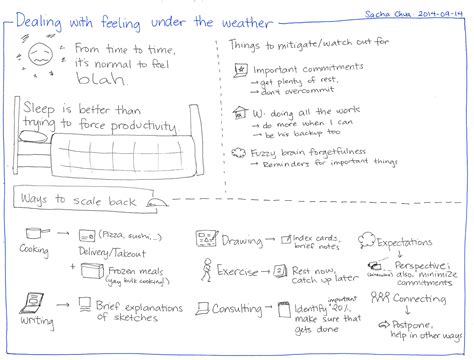 Dealing with feeling under the weather
Sacha Chua 2014-09-14
From time to time,
it's normal to feel
blah.
Sleep is better than
trying to force productivity
Things to mitigate/watch out for
Important commitments
→ get plenty of rest,
don't overcommit
W- doing all the work
→ do more when I can
→ be his backup too
Fuzzy brain forgetfulness
→ Reminders for important things
Ways to scale back
Cooking → (Pizza, sushi,...)
Delivery/Takeout
+ Frozen meals
(yay bulk cooking!)
Writing → Brief explanations
of sketches
Drawing → Index cards,
brief notes
Exercise → Rest now,
catch up later
Consulting → Identify important 20%,
make sure that
gets done
Expectations
→ Perspective;
also, minimize
commitments
Connecting
→ Postpone,
help in other ways